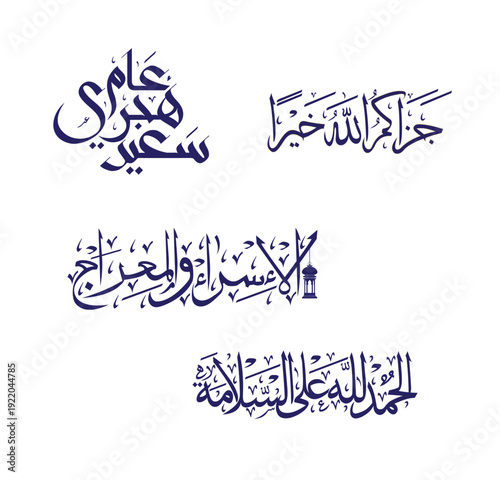 عام
هجري
سعيد
جزاكم الله خيرا
الإسراء والمعراج
الحمد لله على السلامة
Adobe Stock | #1922044785